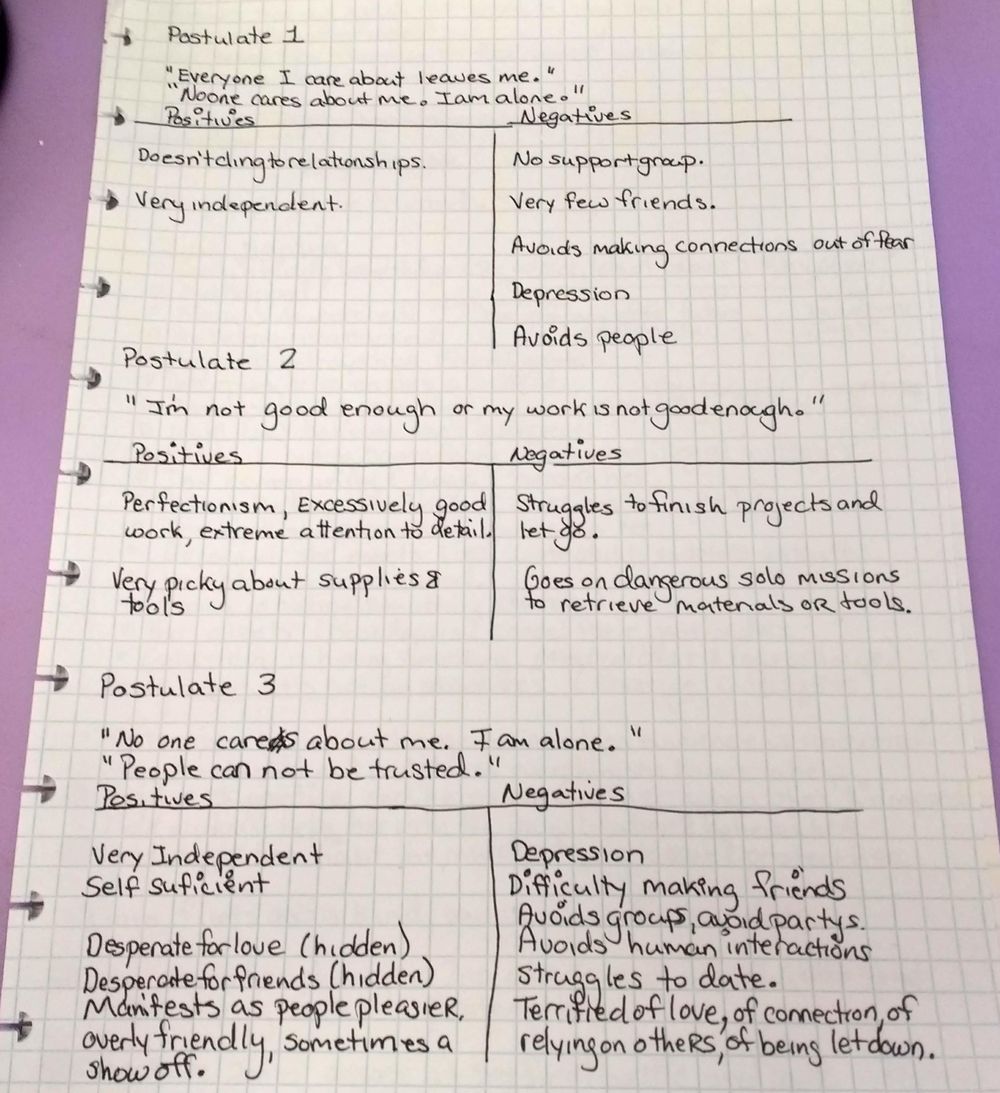 Postulate 1
"Everyone I care about leaves me."
"Noone cares about me. I am alone."
Positives Negatives
Doesn't cling to relationships. No support group.
Very independent. Very few friends.
Avoids making connections out of fear
Depression
Avoids people
Postulate 2
"I'm not good enough or my work is not good enough."
Positives Negatives
Perfectionism, Excessively good Struggles to finish projects and
work, extreme attention to detail. let go.
Very picky about supplies & Goes on dangerous solo missions
tools to retrieve materials or tools.
Postulate 3
"No one cares about me. I am alone."
"People can not be trusted."
Positives Negatives
Very Independent Depression
Self suficient Difficulty making friends
Avoids groups, avoid partys.
Desperate for love (hidden) Avoids human interactions
Desperate for friends (hidden) struggles to date.
Manifests as people pleasier, Terrified of love, of connection, of
overly friendly, sometimes a relying on others, of being let down.
show off.